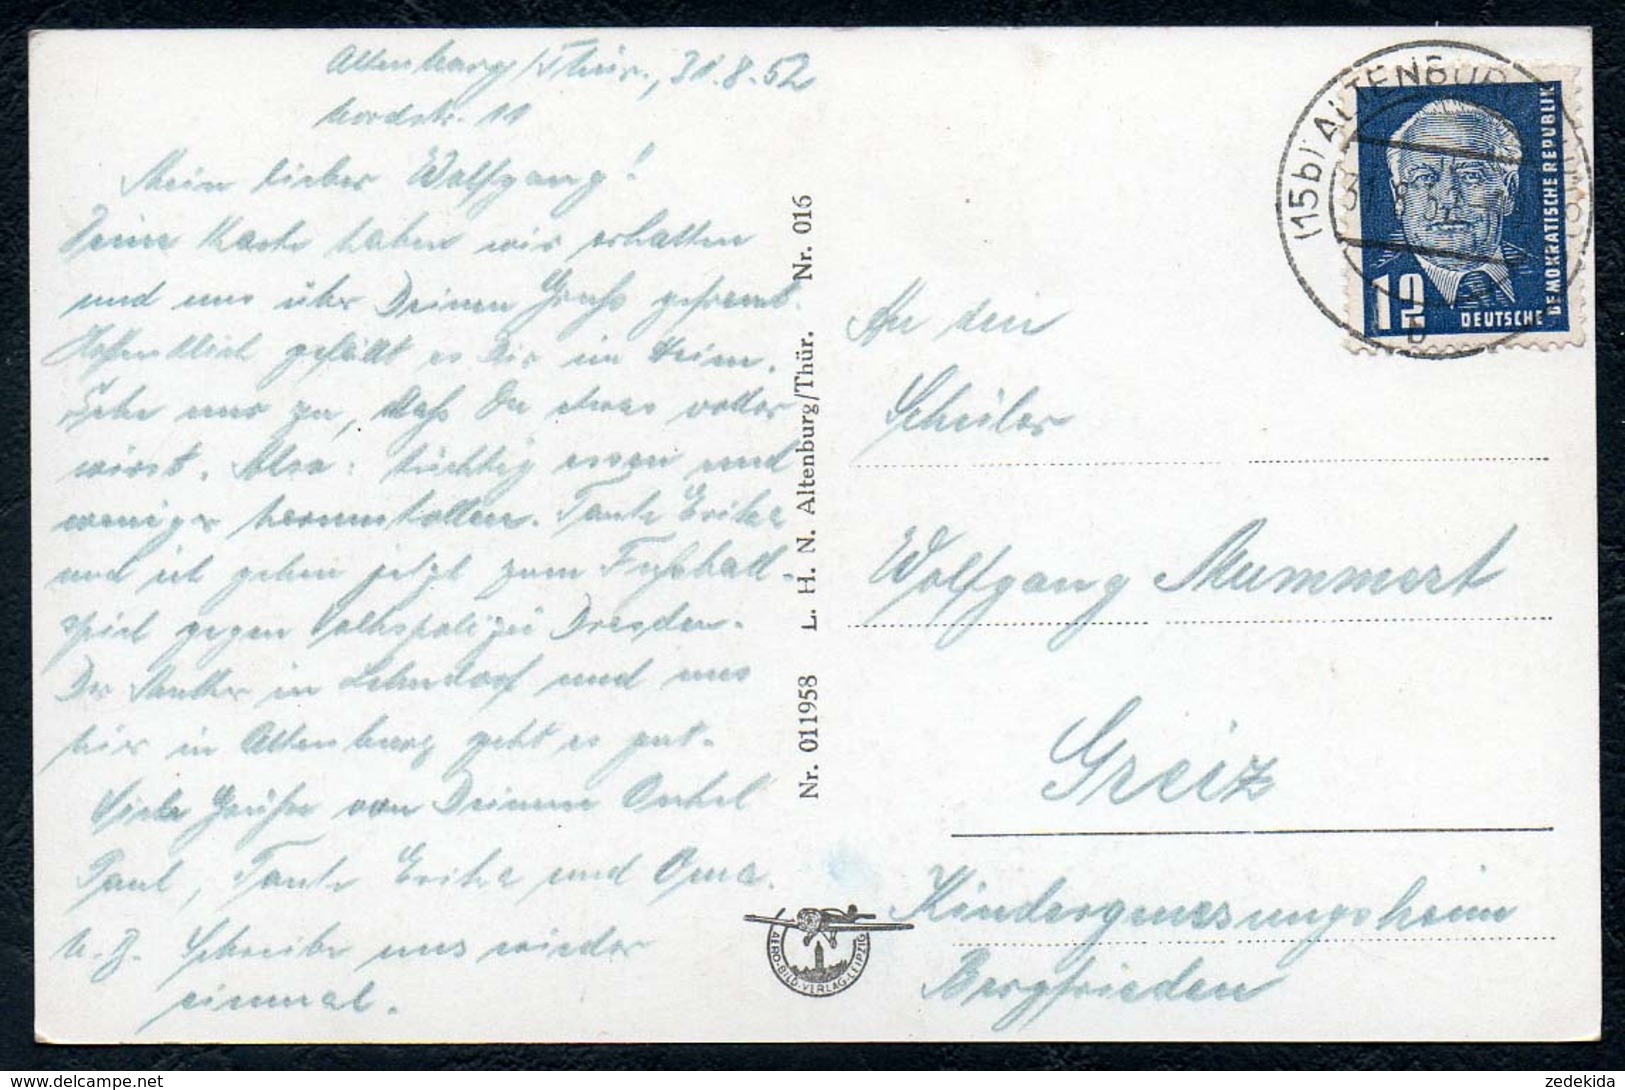 Altenburg/Thür., 31.8.52
Nordstr. 11
Mein lieber Wolfgang!
Deine Karte haben wir erhalten
und uns über Deinen Gruß gefreut.
Hoffentlich gefällt es Dir im Heim.
Sehe nur zu, daß Du etwas voller
wirst. Also: tüchtig essen und
weniger herumtollen. Tante Erika
und ich gehen jetzt zum Fußball-
spiel gegen Volkspolizei Dresden.
Der Mutter in Lehndorf und uns
hier in Altenburg geht es gut.
Viele Grüße von Deinem Onkel
Paul, Tante Erika und Oma.
N. B. Schreibe uns wieder
einmal.
Nr. 011958 L. H. N. Altenburg/Thür. Nr. 016
AERO-BILD-VERLAG-LEIPZIG
(15b) ALTENBURG
b
12
DEUTSCHE DEMOKRATISCHE REPUBLIK
An den
Schüler
Wolfgang Mummert
Greiz
Kindergenesungsheim
Bergfrieden
zedekida